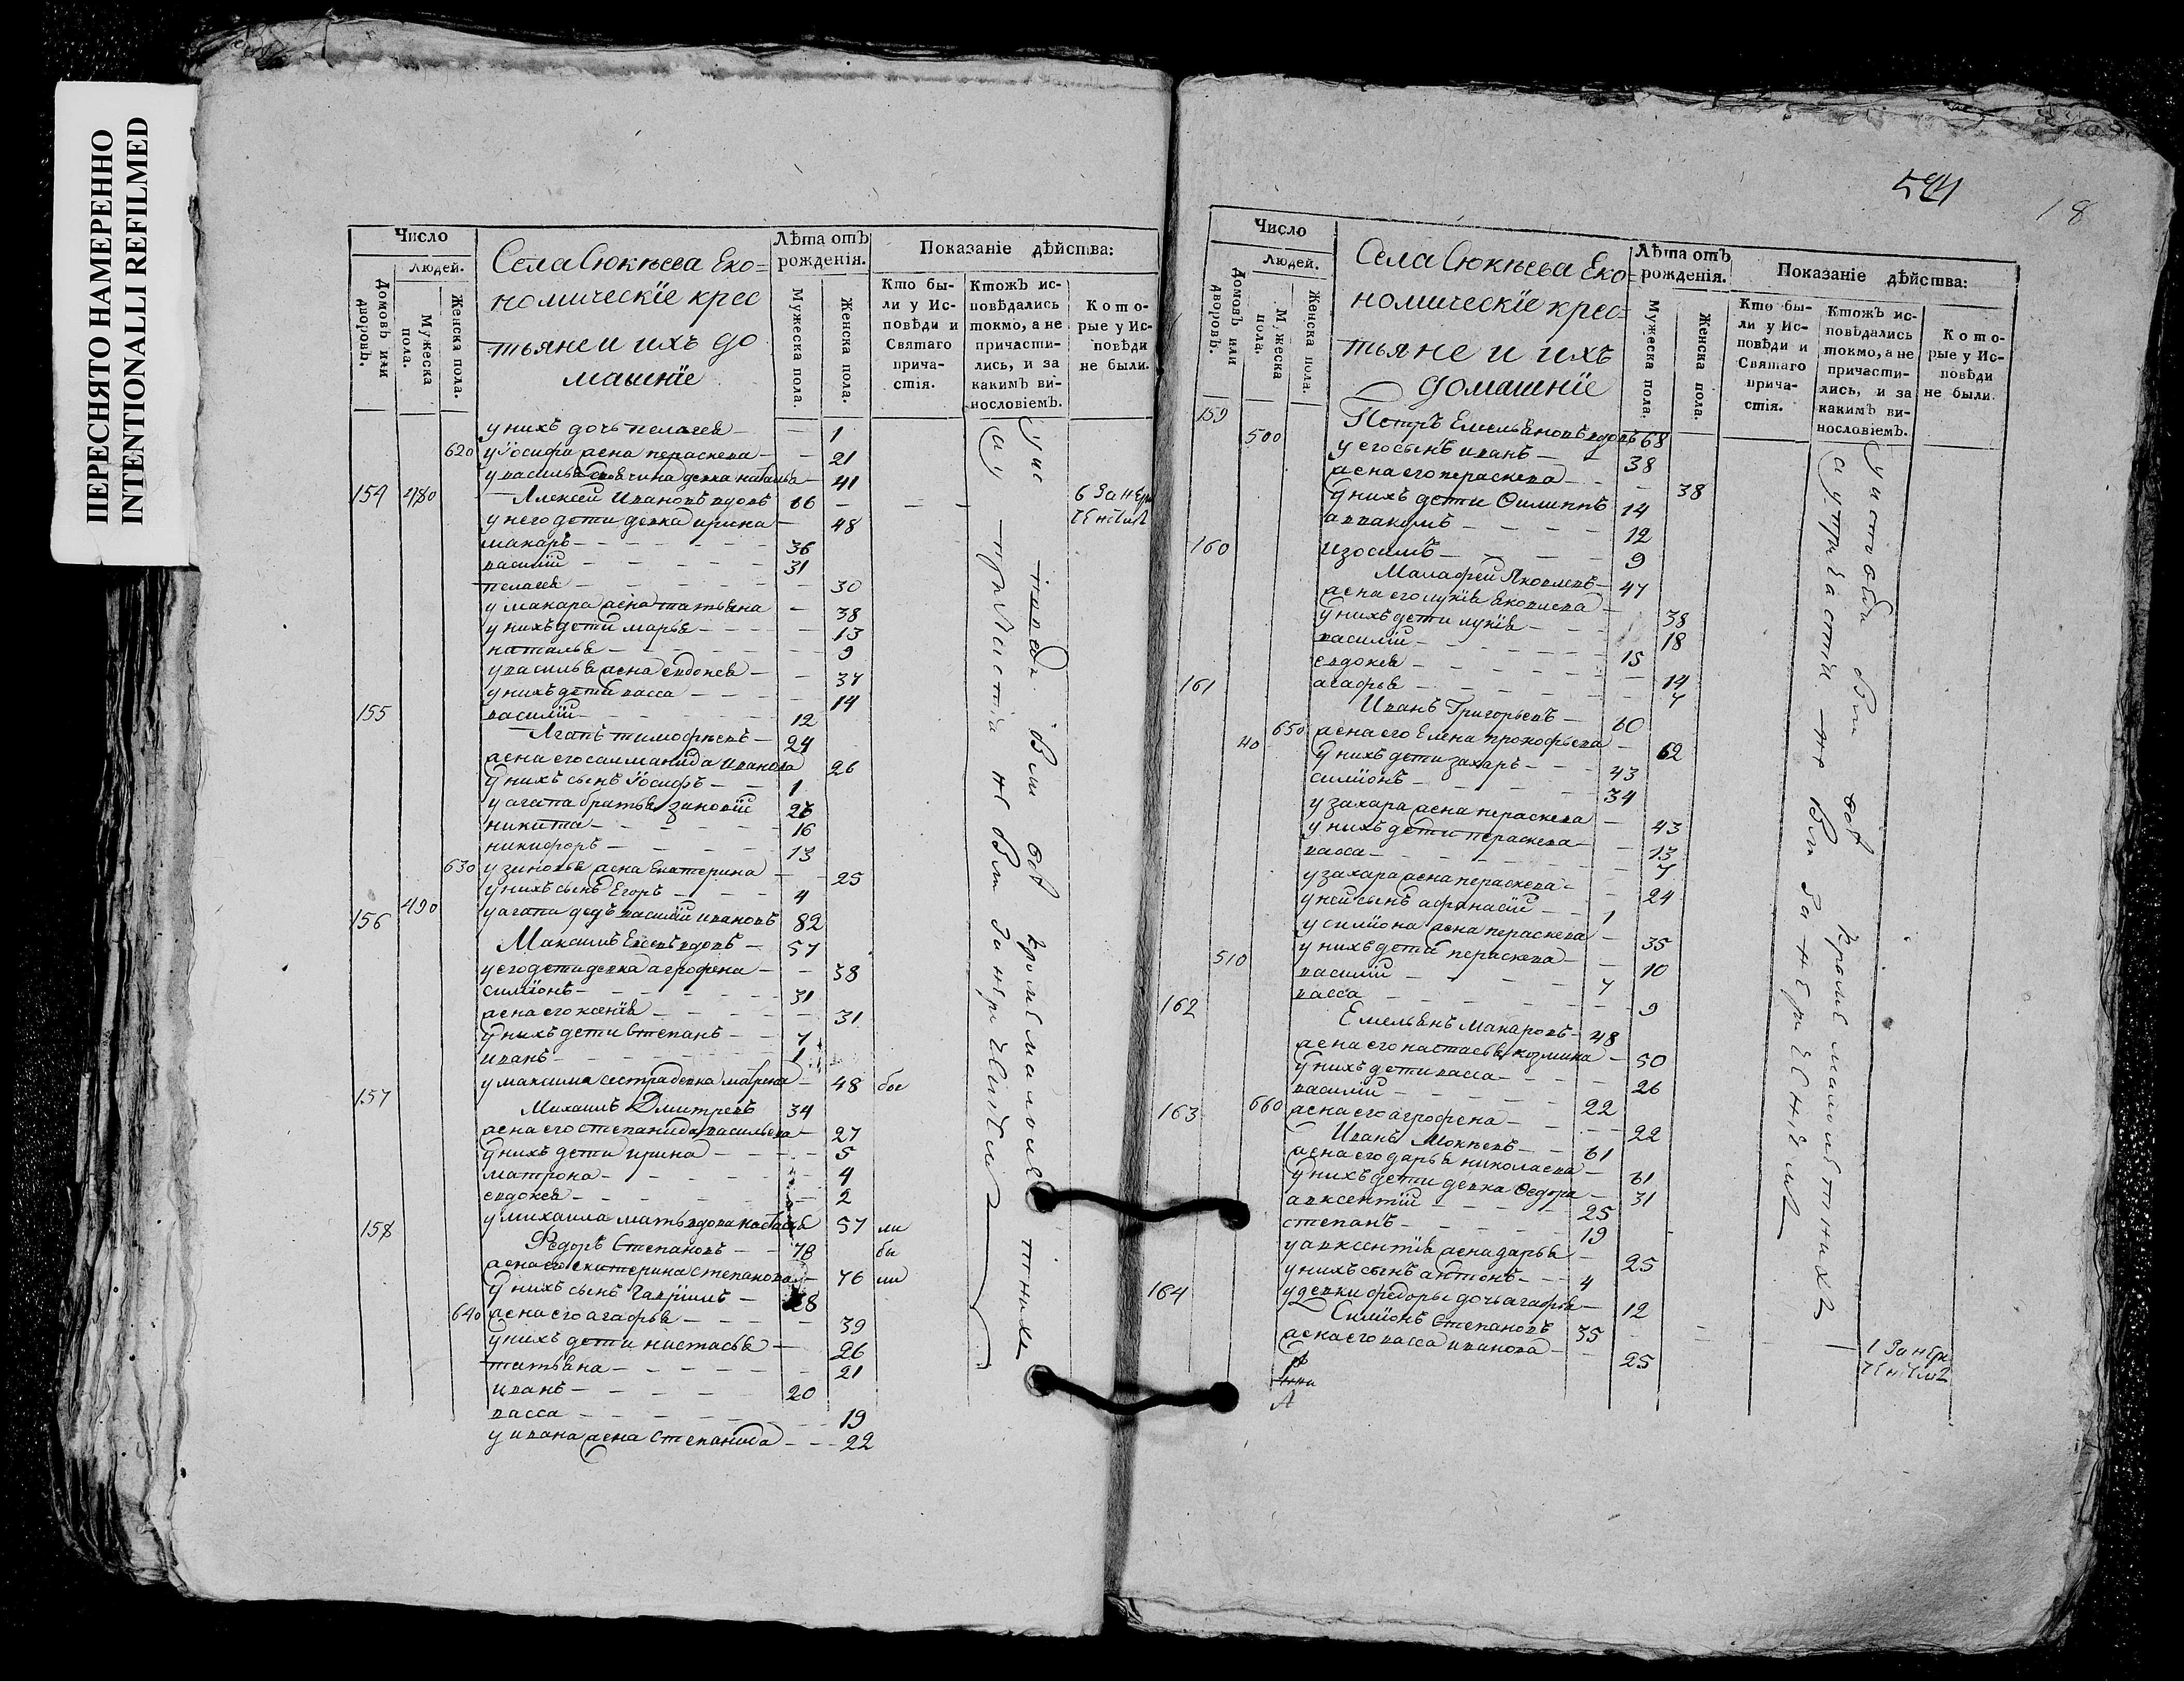 ПЕРЕСНЯТО НАМЕРЕННО
INTENTIONALLI REFILMED
Число
Людей.
Домовъ или дворовъ.
Мужеска пола.
Женска пола.
Села Сюкѣева Эко=
номическіе крес
тьяне и ихъ до
машніе
Лѣта отъ рожденія.
Мужеска пола.
Женска пола.
Показаніе дѣйства:
Кто бы-
ли у Ис-
повѣди и
Святаго
прича-
стія.
Ктожъ ис-
повѣдались
токмо, а не
причасти-
лись, и за
какимъ ви-
нословіемъ.
Кото-
рые у Ис-
повѣди
не были.
у нихъ дочь пелагея 1
620 у Іосифа жена параскева 21
у василья девка наталья 41
154 480 Алексей Ивановъ вдовъ 66
у него дети девка ирина 48
макаръ 36
василій 31
пелагея 30
у макара жена татьяна 38
у нихъ дети марья 13
наталья 9
у василья жена евдокея 37
у нихъ дети васса 14
155 василій 12
Агапъ тимофѣевъ 24
жена его саламанида иванова 26
у нихъ сынъ Іосифъ 1
у агапа братья зиновій
никита 16
никифоръ 13
630 у зиновья жена екатерина 25
у нихъ сынъ Егоръ 4
156 490 у агапа дедъ василій ивановъ 82
Максимъ вдовъ 57
у его дети девка агрофена 38
симіонъ 31
жена его ксенія 31
у нихъ дети степанъ 7
иванъ 1
у максима сестра девка 48 бы
157 Михаилъ Дмитревъ 34
жена его степанида васильева 27
у нихъ дети ирина 5
матрона 4
евдокея 2
у михаила мать вдова настасья 57 ли
158 Ѳедоръ Степановъ 78 бы
жена его екатерина степанова 76 ли
у нихъ сынъ Гавріилъ
640 жена его агафья 39
у нихъ дети настасья 26
татьяна 21
иванъ 20
васса 19
у ивана жена степанида 22
у исповѣди вси бѣ кромѣ малолетнихъ
а у причастія не вси за нерачениемъ
594
18
Число
Людей.
Домовъ или дворовъ.
Мужеска пола.
Женска пола.
Села Сюкѣева Эко=
номическіе крес=
тьяне и ихъ
домашніе
Лѣта отъ рожденія.
Мужеска пола.
Женска пола.
Показаніе дѣйства:
Кто бы-
ли у Ис-
повѣди и
Святаго
прича-
стія.
Ктожъ ис-
повѣдались
токмо, а не
причасти-
лись, и за
какимъ ви-
нословіемъ.
Кото-
рые у Ис-
повѣди
не были.
159 Петръ Емельяновъ вдовъ 68
500 у его сынъ иванъ 38
жена его параскева 38
у нихъ дети Филиппъ 14
аввакумъ 12
160 изосимъ 9
Малафей Яковлевъ 47
жена его лукія 38
у нихъ дети лукія 18
василій 15
евдокея 14
161 агафья 7
Иванъ Григорьевъ 60
650 жена его Елена прокофьева 62
у нихъ дети захаръ 43
симіонъ 34
у захара жена параскева 43
у нихъ дети параскева 13
васса 7
у захара жена параскева 24
у ней сынъ афанасій 1
у симіона жена параскева 35
у нихъ дети параскева 10
510 василій 7
васса 9
162 Емельянъ Макаровъ 48
жена его настасья козмина 50
у нихъ дети васса 26
василій 22
163 660 жена его агрофена 22
Иванъ Мокѣевъ 61
жена его дарья николаева 61
у нихъ дети девка Ѳедора 31
авксентій 25
степанъ 19
у авксентія жена дарья 25
у нихъ сынъ антонъ 4
164 у девки федоры дочь агафья 12
Симіонъ Степановъ 35
жена его васса иванова 25
у исповѣди вси бѣ кромѣ малолетнихъ
а у причастія не вси за нерачениемъ